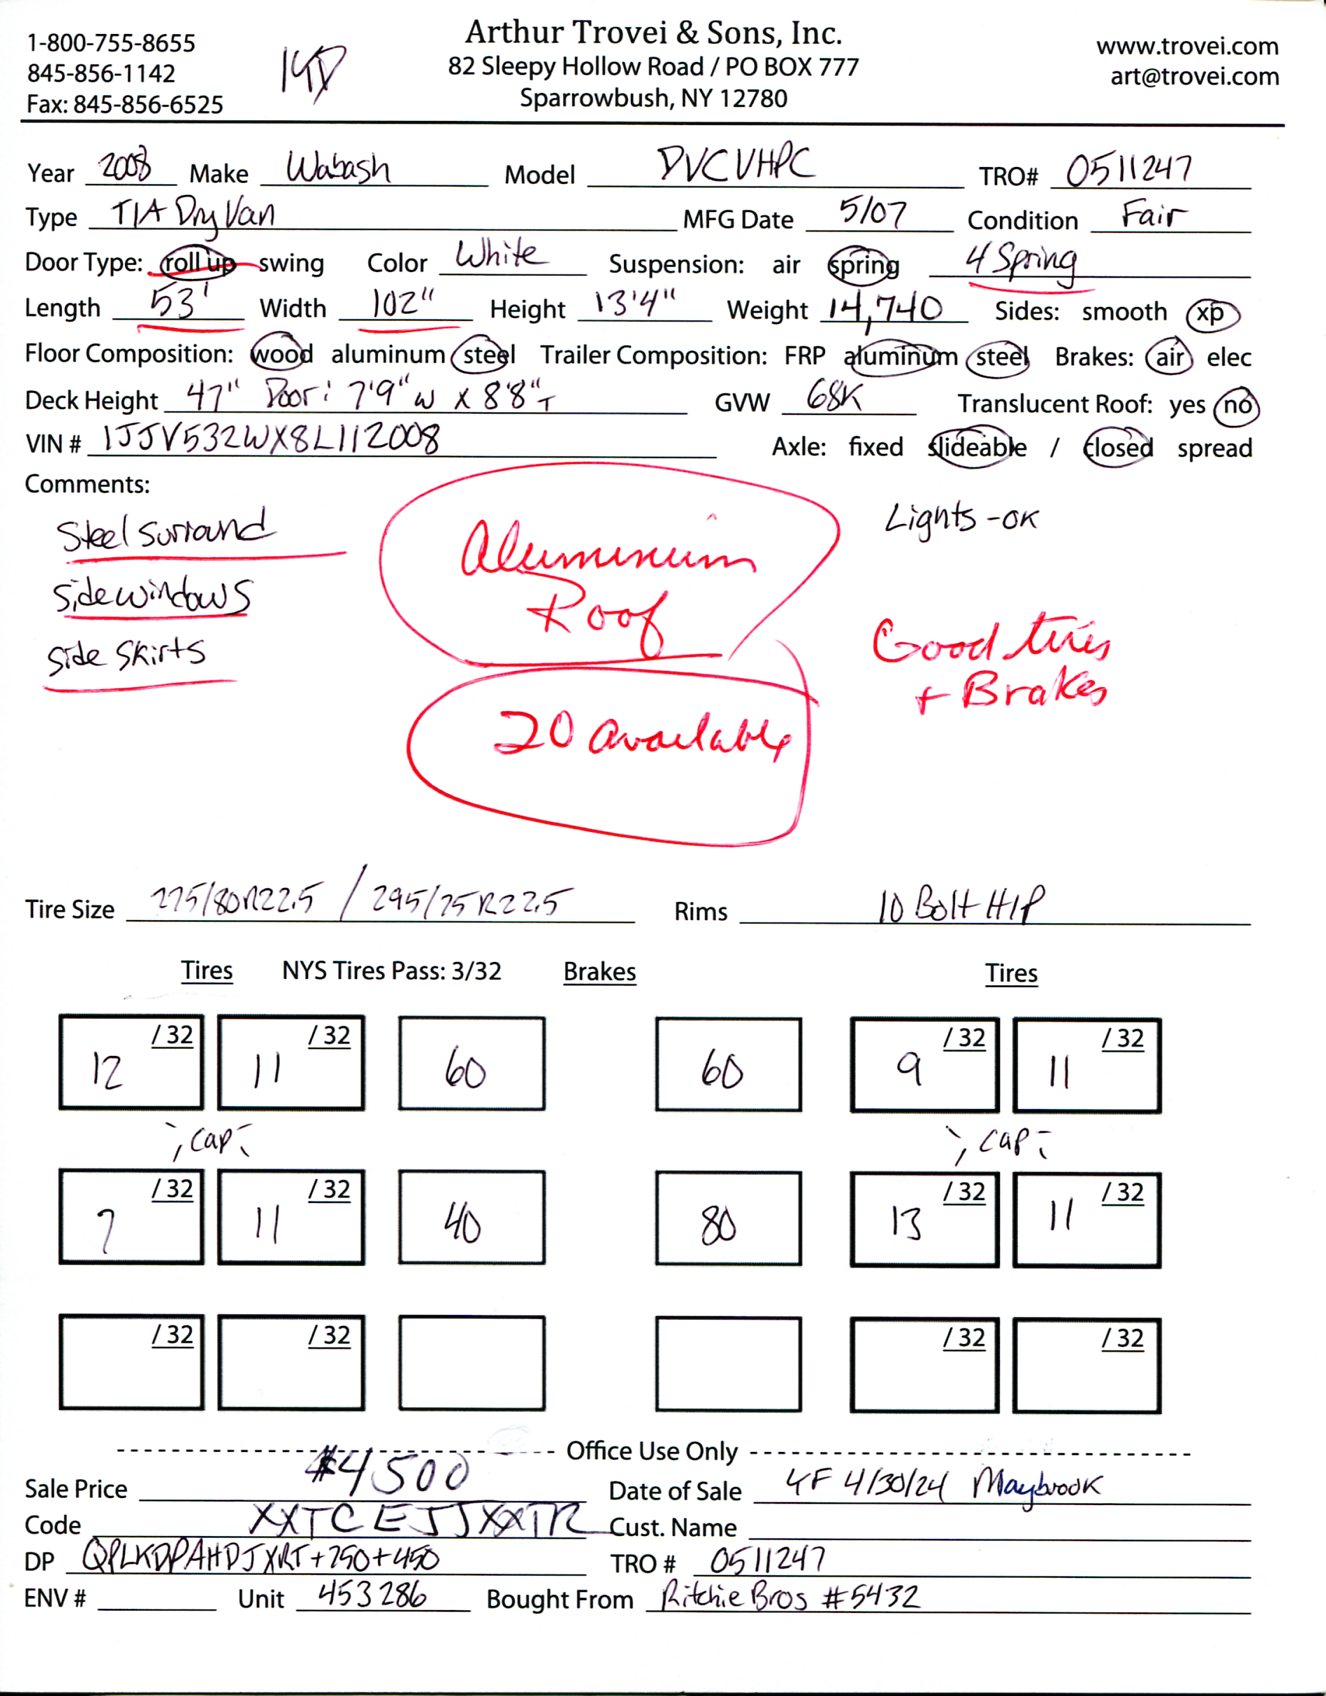 Arthur Trovei & Sons, Inc.
82 Sleepy Hollow Road / PO BOX 777
Sparrowbush, NY 12780
1-800-755-8655
845-856-1142
Fax: 845-856-6525
www.trovei.com
art@trovei.com
Year 2008 Make Wabash Model DVCVHPC TRO# 0511247
Type T/A Dry Van MFG Date 5/07 Condition Fair
Door Type: roll up swing Color White Suspension: air spring 4 Spring
Length 53' Width 102" Height 13'4" Weight 14,740 Sides: smooth xp
Floor Composition: wood aluminum steel Trailer Composition: FRP aluminum steel Brakes: air elec
Deck Height 47" Door: 7'9"W X 8'8"T GVW 68K Translucent Roof: yes no
VIN # 1JJV532WX8L112008 Axle: fixed slideable / closed spread
Comments:
Steel Surround
side windows
side skirts
Aluminum
Roof
20 available
Lights -OK
Good tires
+ Brakes
Tire Size 275/80R22.5 / 295/75R22.5 Rims 10 Bolt H/P
Tires NYS Tires Pass: 3/32 Brakes Tires
12 /32 11 /32 60 60 9 /32 11 /32
; cap ; ; cap ;
7 /32 11 /32 40 80 13 /32 11 /32
/32 /32 /32 /32
Office Use Only
Sale Price $4500 Date of Sale YF 4/30/24 Maybrook
Code XXTCEJJXXTR Cust. Name
DP QPLKDPAHDJXRT+250+450 TRO # 0511247
ENV # Unit 453286 Bought From Ritchie Bros #5432